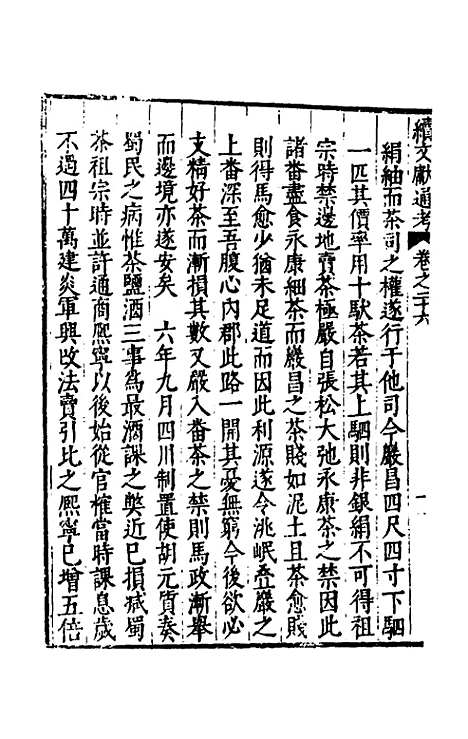 續文獻通考 卷之二十六
絹紬而茶司之權遂行于他司今嚴昌四尺四寸下駟
一匹其價率用十馱茶若其上駟則非銀絹不可得祖
宗時禁邊地賣茶極嚴自張松大弛永康茶之禁因此
諸番盡食永康細茶而嚴昌之茶賤如泥土且茶愈賤
則得馬愈少猶未足道而因此利源遂令洮岷疊嚴之
上番深至吾腹心內郡此路一開其憂無窮今後欲必
支精好茶而漸損其數又嚴入番茶之禁則馬政漸舉
而邊境亦遂安矣 六年九月四川制置使胡元質奏
蜀民之病惟茶鹽酒三事爲最酒課之獘近已損減蜀
茶祖宗時並許通商熙寧以後始從官榷當時課息歲
不過四十萬建炎軍興攺法賣引比之熙寧已增五倍